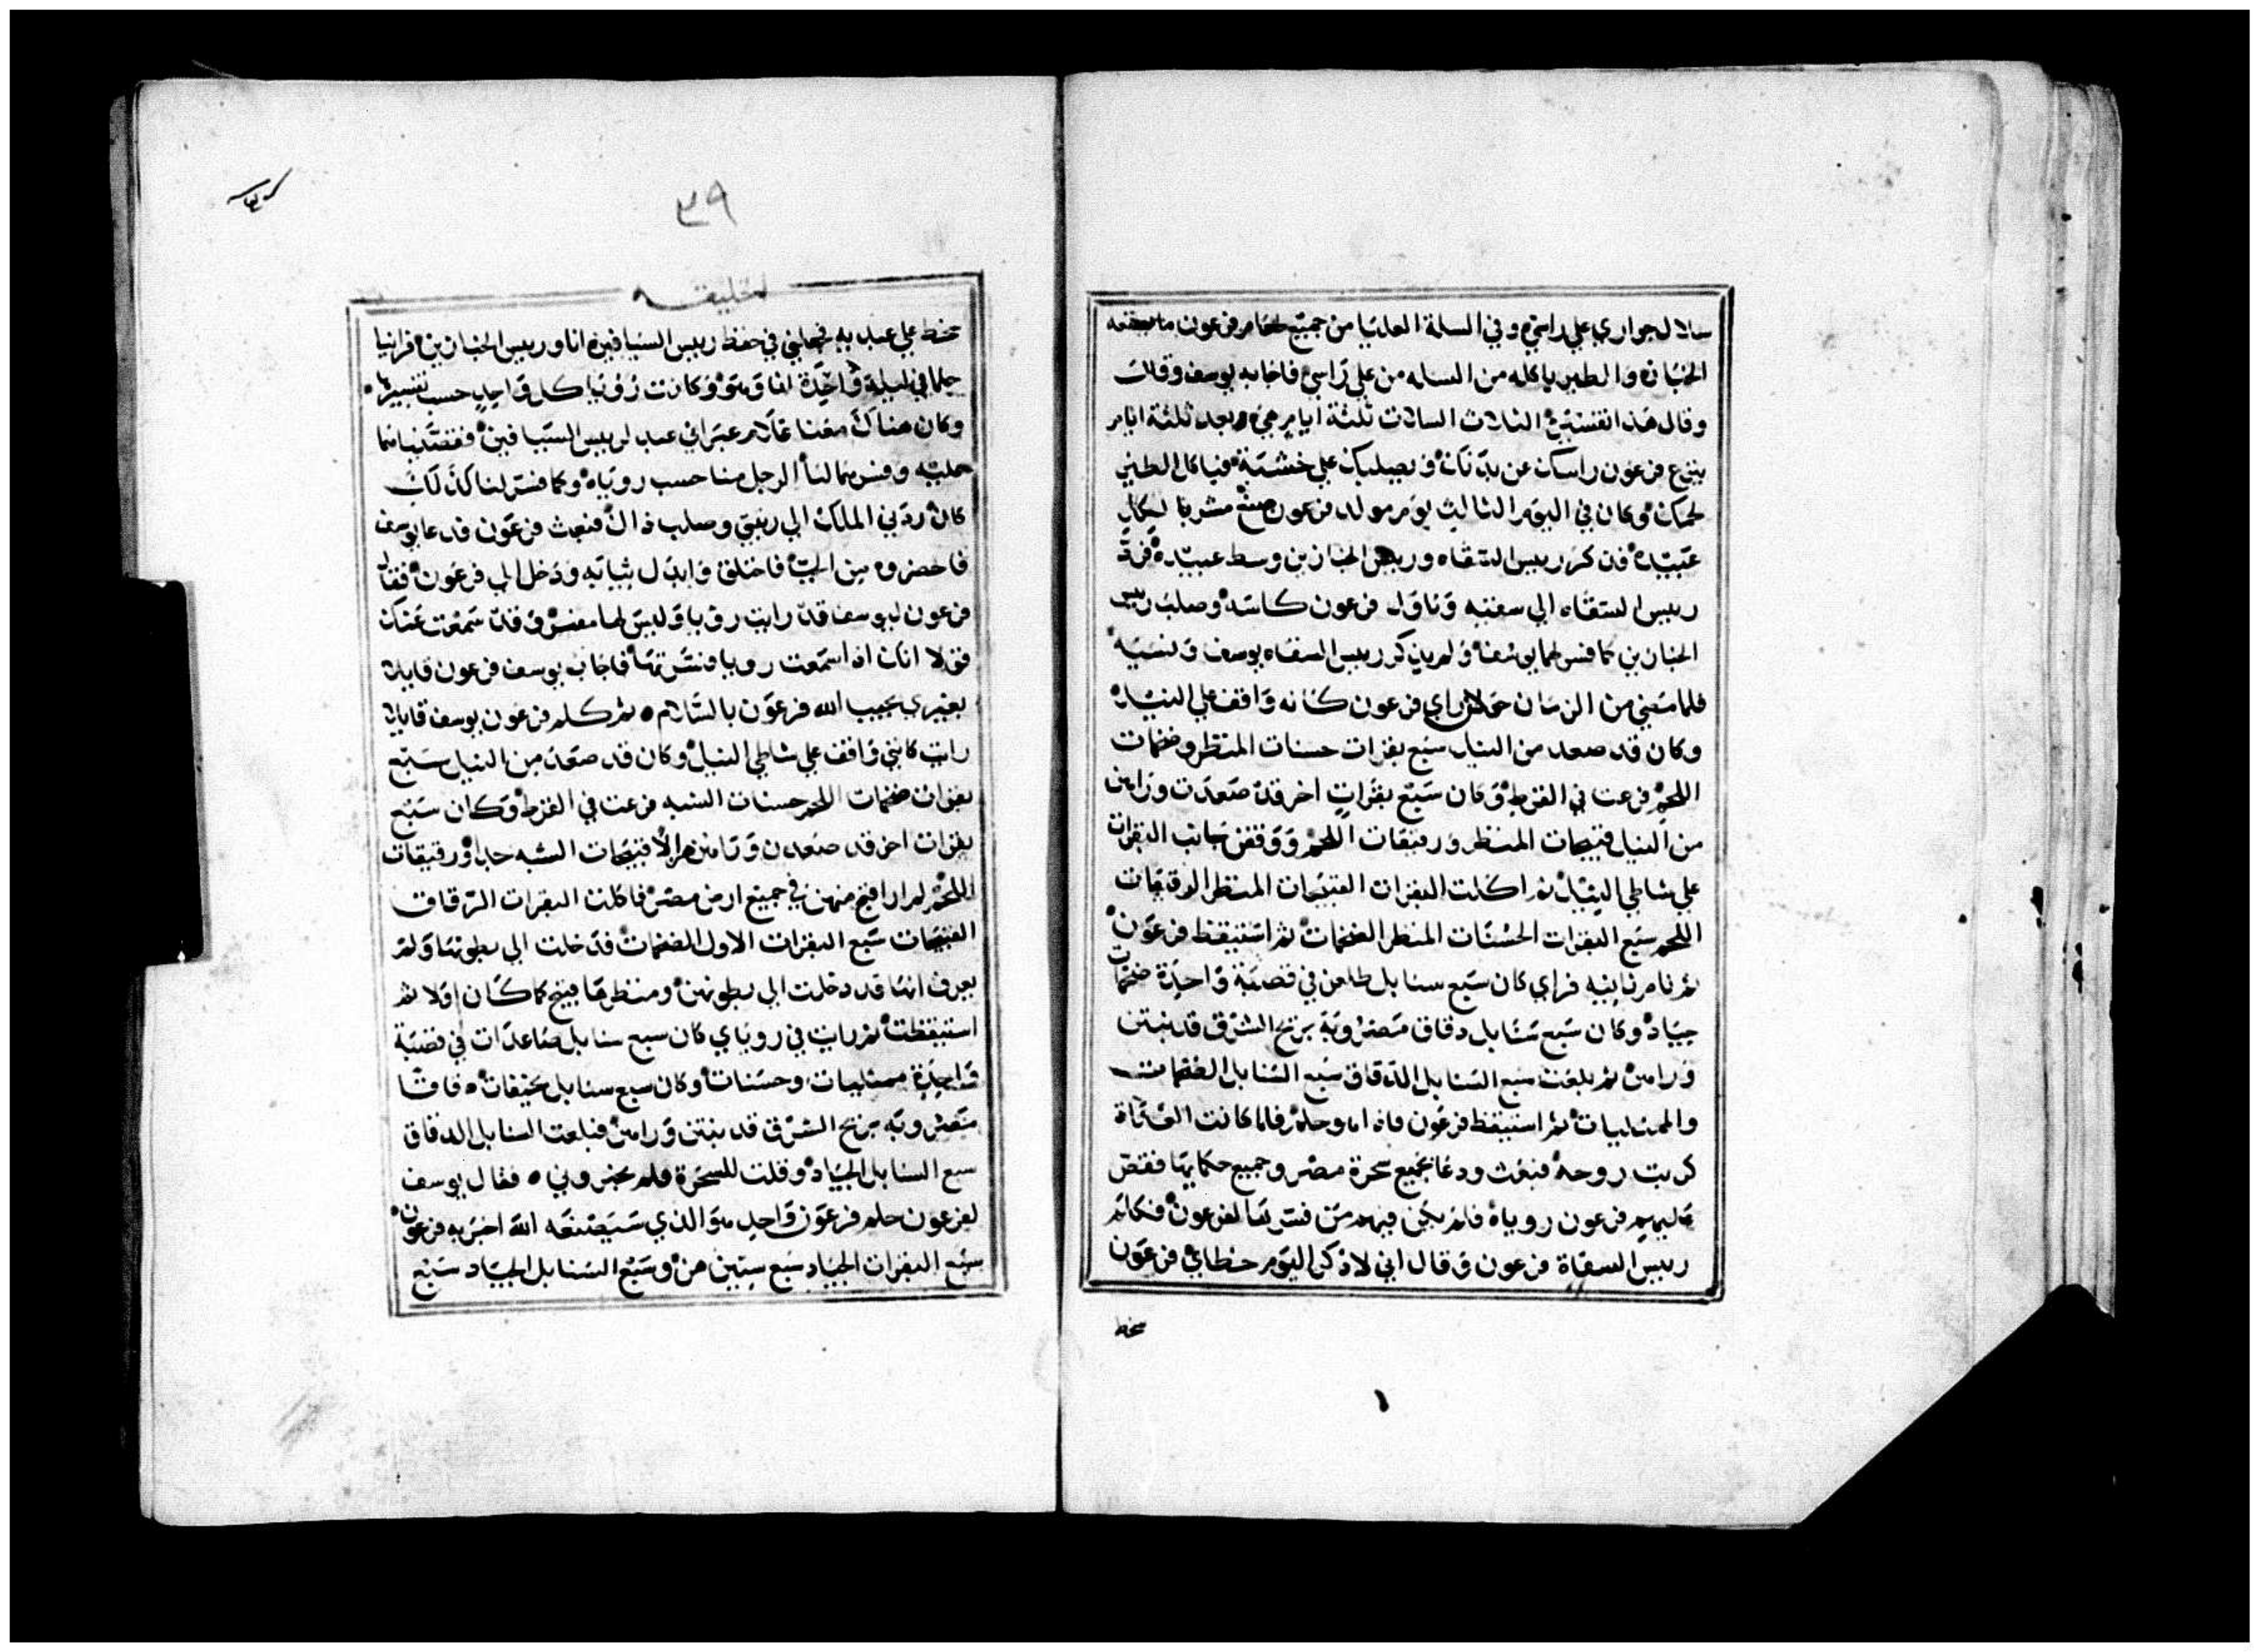 سلال جواري علي راسي وفي السلة العليا من جميع طعام فرعون ما يصنعه
الخباز والطير ياكله من السله من علي راسي فاجابه يوسف وقال
وقال هذا تفسيره الثلاث السلات ثلثة ايام هي وبعد ثلثة ايام
ينزع فرعون راسك عن بدنك ويصلبك علي خشبة فياكل الطير
لحمك وكان في اليوم الثالث يوم مولد فرعون صنع مشربا لكل
عبيده فذكر رييس السقاه ورييس الخبازين وسط عبيده فرد
رييس السقاه الي سقيه وناول فرعون كاسه وصلب رييس
الخبازين كما فسر لهما يوسف ولم يذكر رييس السقاه يوسف ونسيه
فلما مضي من الزمان حولان راي فرعون كانه واقف علي النيل
وكان قد صعد من النيل سبع بقرات حسنات المنظر وضخمات
اللحم فرعت في القرط وكان سبع بقرات اخر قد صعدت وراهن
من النيل قبيحات المنظر ورقيقات اللحم ووقفن جانب البقرات
علي شاطي النيل ثم اكلت البقرات القبيحات المنظر الرقيقات
اللحم سبع البقرات الحسنات المنظر الضخمات ثم استيقظ فرعون
ثم نام ثانيه فراي كان سبع سنابل طلعن في قصبة واحدة ضخمات
جياد وكان سبع سنابل دقاق مضروبة بريح الشرق قد نبتن
وراهن ثم بلعت سبع السنابل الدقاق سبع السنابل الضخمات
والممتليات ثم استيقظ فرعون فاذا هو حلم فلما كانت الغداة
كربت روحه فبعث ودعا بجميع سحرة مصر وجميع حكمايها فقص
عليهم فرعون روياه فلم يكن فيهم من فسرها لفرعون فكلم
رييس السقاة فرعون وقال اني لاذكر اليوم خطاي فرعون
سخط
١
٣٩
الخليقه
سخط علي عبديه فجعلني في حفظ رييس السيافين انا ورييس الخبازين فراينا
حلما في ليلة واحدة انا وهو وكانت رؤيا كل واحد حسب تفسيرها
وكان هناك معنا غلام عبراني عبد لرييس السيافين فقصصنا ما
حلمناه وفسرهما لنا الرجل منا حسب روياه وكما فسر لنا كذلك
كان ردني الملك الي رتبتي وصلب ذاك فبعث فرعون فدعا يوسف
فاحضروه من الجب فاحتلق وابدل ثيابه ودخل الي فرعون فقال
فرعون ليوسف قد رايت رؤيا وليس لها مفسر وقد سمعت عنك
قولا انك اذا سمعت رويا فسرتها فاجاب يوسف فرعون قايلا
بغيري يجيب الله فرعون بالسلام ثم كلم فرعون يوسف قايلا
رايت كانني واقف علي شاطي النيل وكان قد صعد من النيل سبع
بقرات ضخمات اللحم حسنات الشبه فرعت في القرط وكان سبع
بقرات اخر قد صعدن وراهن هزلا قبيحات الشبه جدا ورقيقات
اللحم لم ار اقبح منهن في جميع ارض مصر فاكلت البقرات الرقاق
القبيحات سبع البقرات الاول الضخمات فدخلت الي بطونها ولم
يعرف انها قد دخلت الي بطونهن ومنظرها قبيح كما كان اولا ثم
استيقظت ثم رايت في روياي كان سبع سنابل صاعدات في قصبة
واحدة ممتليات وحسنات وكان سبع سنابل نحيفات دقاقا
مضروبه بريح الشرق قد نبتن وراهن فبلعت السنابل الدقاق
سبع السنابل الجياد وقلت للسحرة فلم يخبروني فقال يوسف
لفرعون حلم فرعون واحد هو الذي سيصنعه الله اخبر به فرعون
سبع البقرات الجياد سبع سنين هن وسبع السنابل الجياد سبع